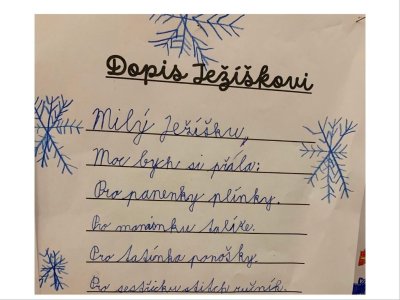 Dopis Ježíškovi
Milý Ježíšku,
Moc bych si přála:
Pro panenky plínky.
Pro maminku talíře.
Pro tatínka ponožky.
Pro sestřičku stitch ručník.